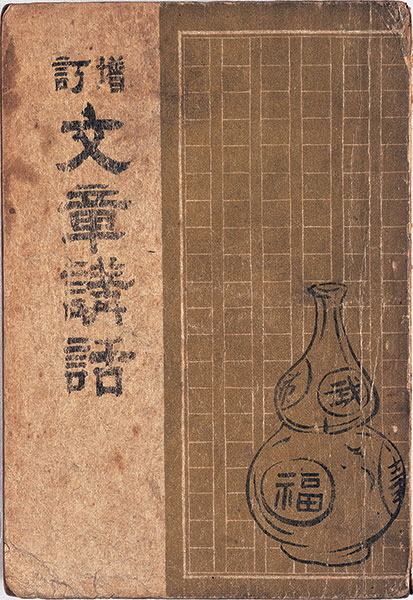 增訂
文章講話
福